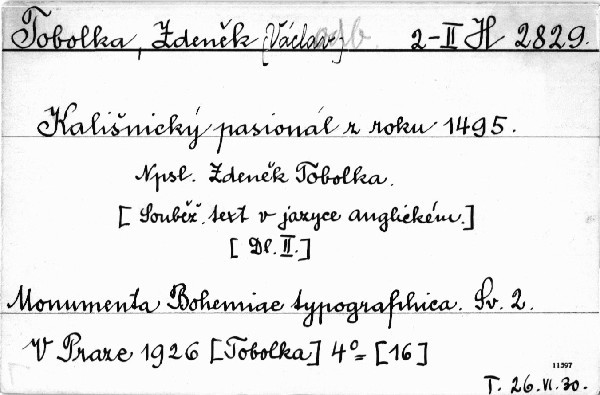 Tobolka, Zdeněk [Václav] 2-II H 2829.
Kališnický pasionál z roku 1495.
Npsl. Zdeněk Tobolka.
[Souběž. text v jazyce anglickém.]
[Dl. II.]
Monumenta Bohemiae typografhica. Sv. 2.
V Praze 1926 [Tobolka] 4°= [16]
11597
T. 26.VI.30.